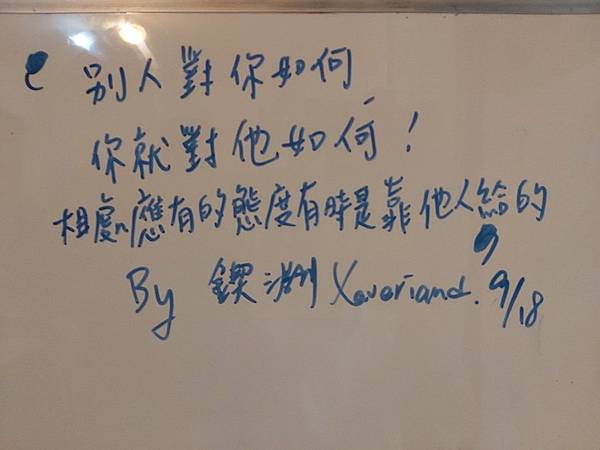 別人對你如何
你就對他如何!
相處應有的態度有時是靠他人給的
By 鍥渊 Xaveriand. 9/18